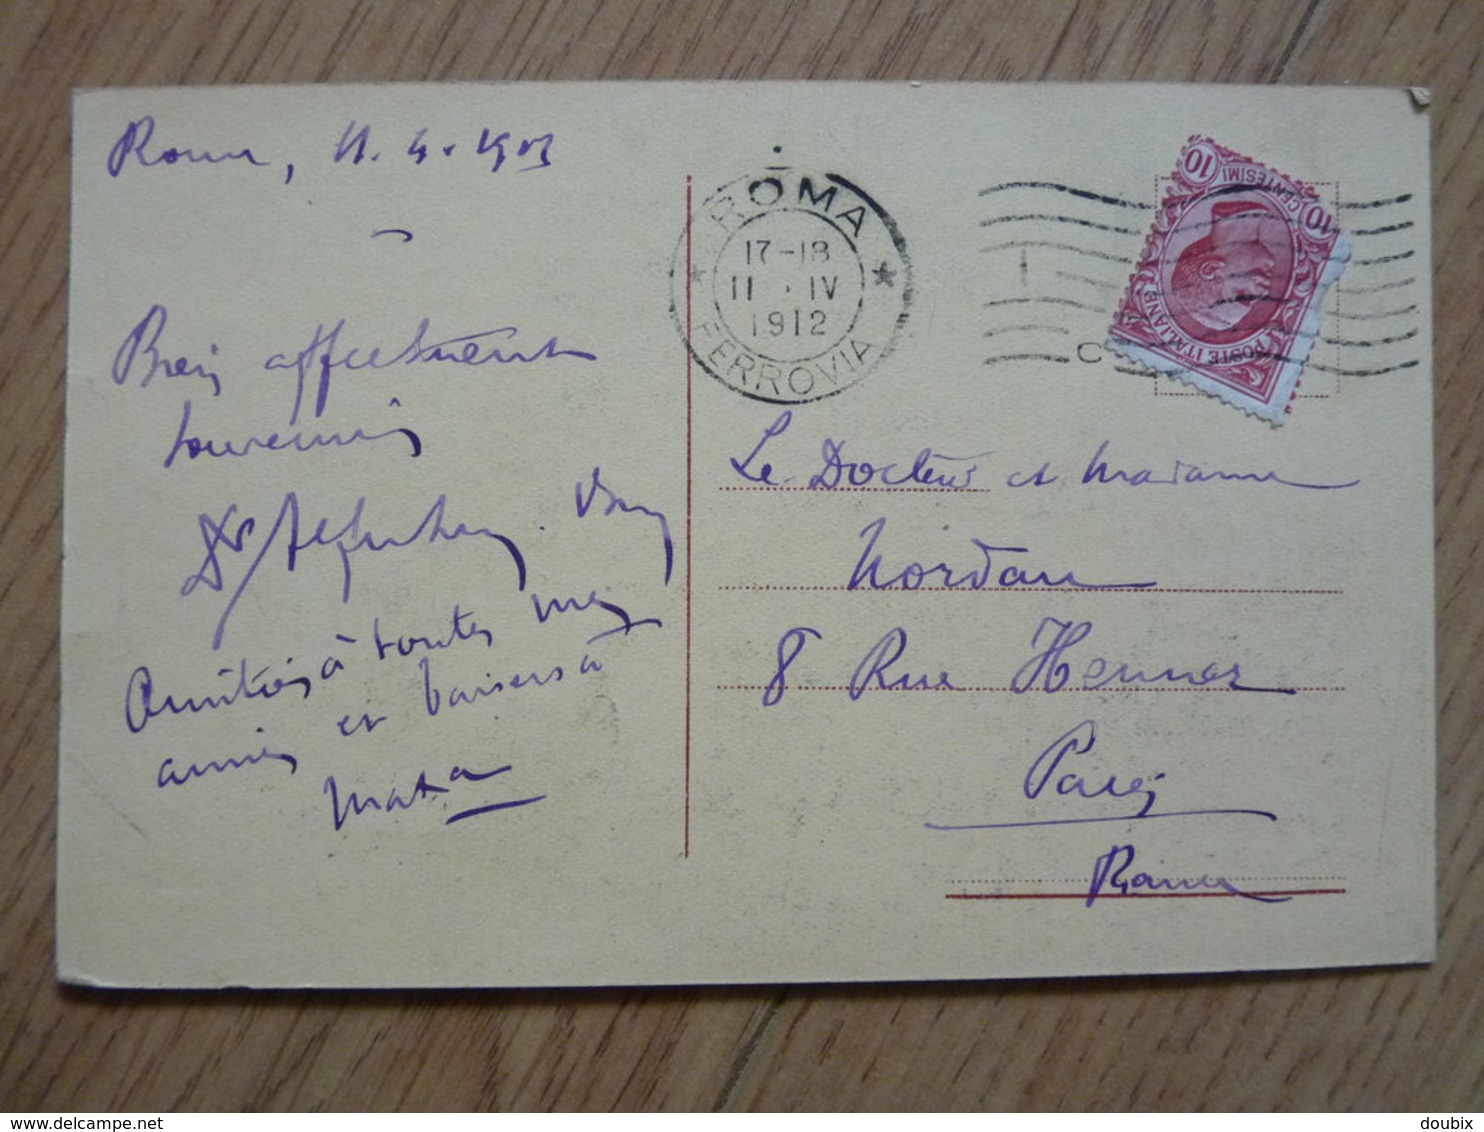 Rome, 11. 4. 19
Bien affectueux
souvenirs
Dr
Amitiés à toutes mes
amies et baisers à
Maxa
ROMA
17-18
11 · IV
1912
FERROVIA
10
10
CENTESIMI
POSTE ITALIANE
Le Docteur et Madame
Nordau
8 Rue Henner
Paris
doubix
www.delcampe.net